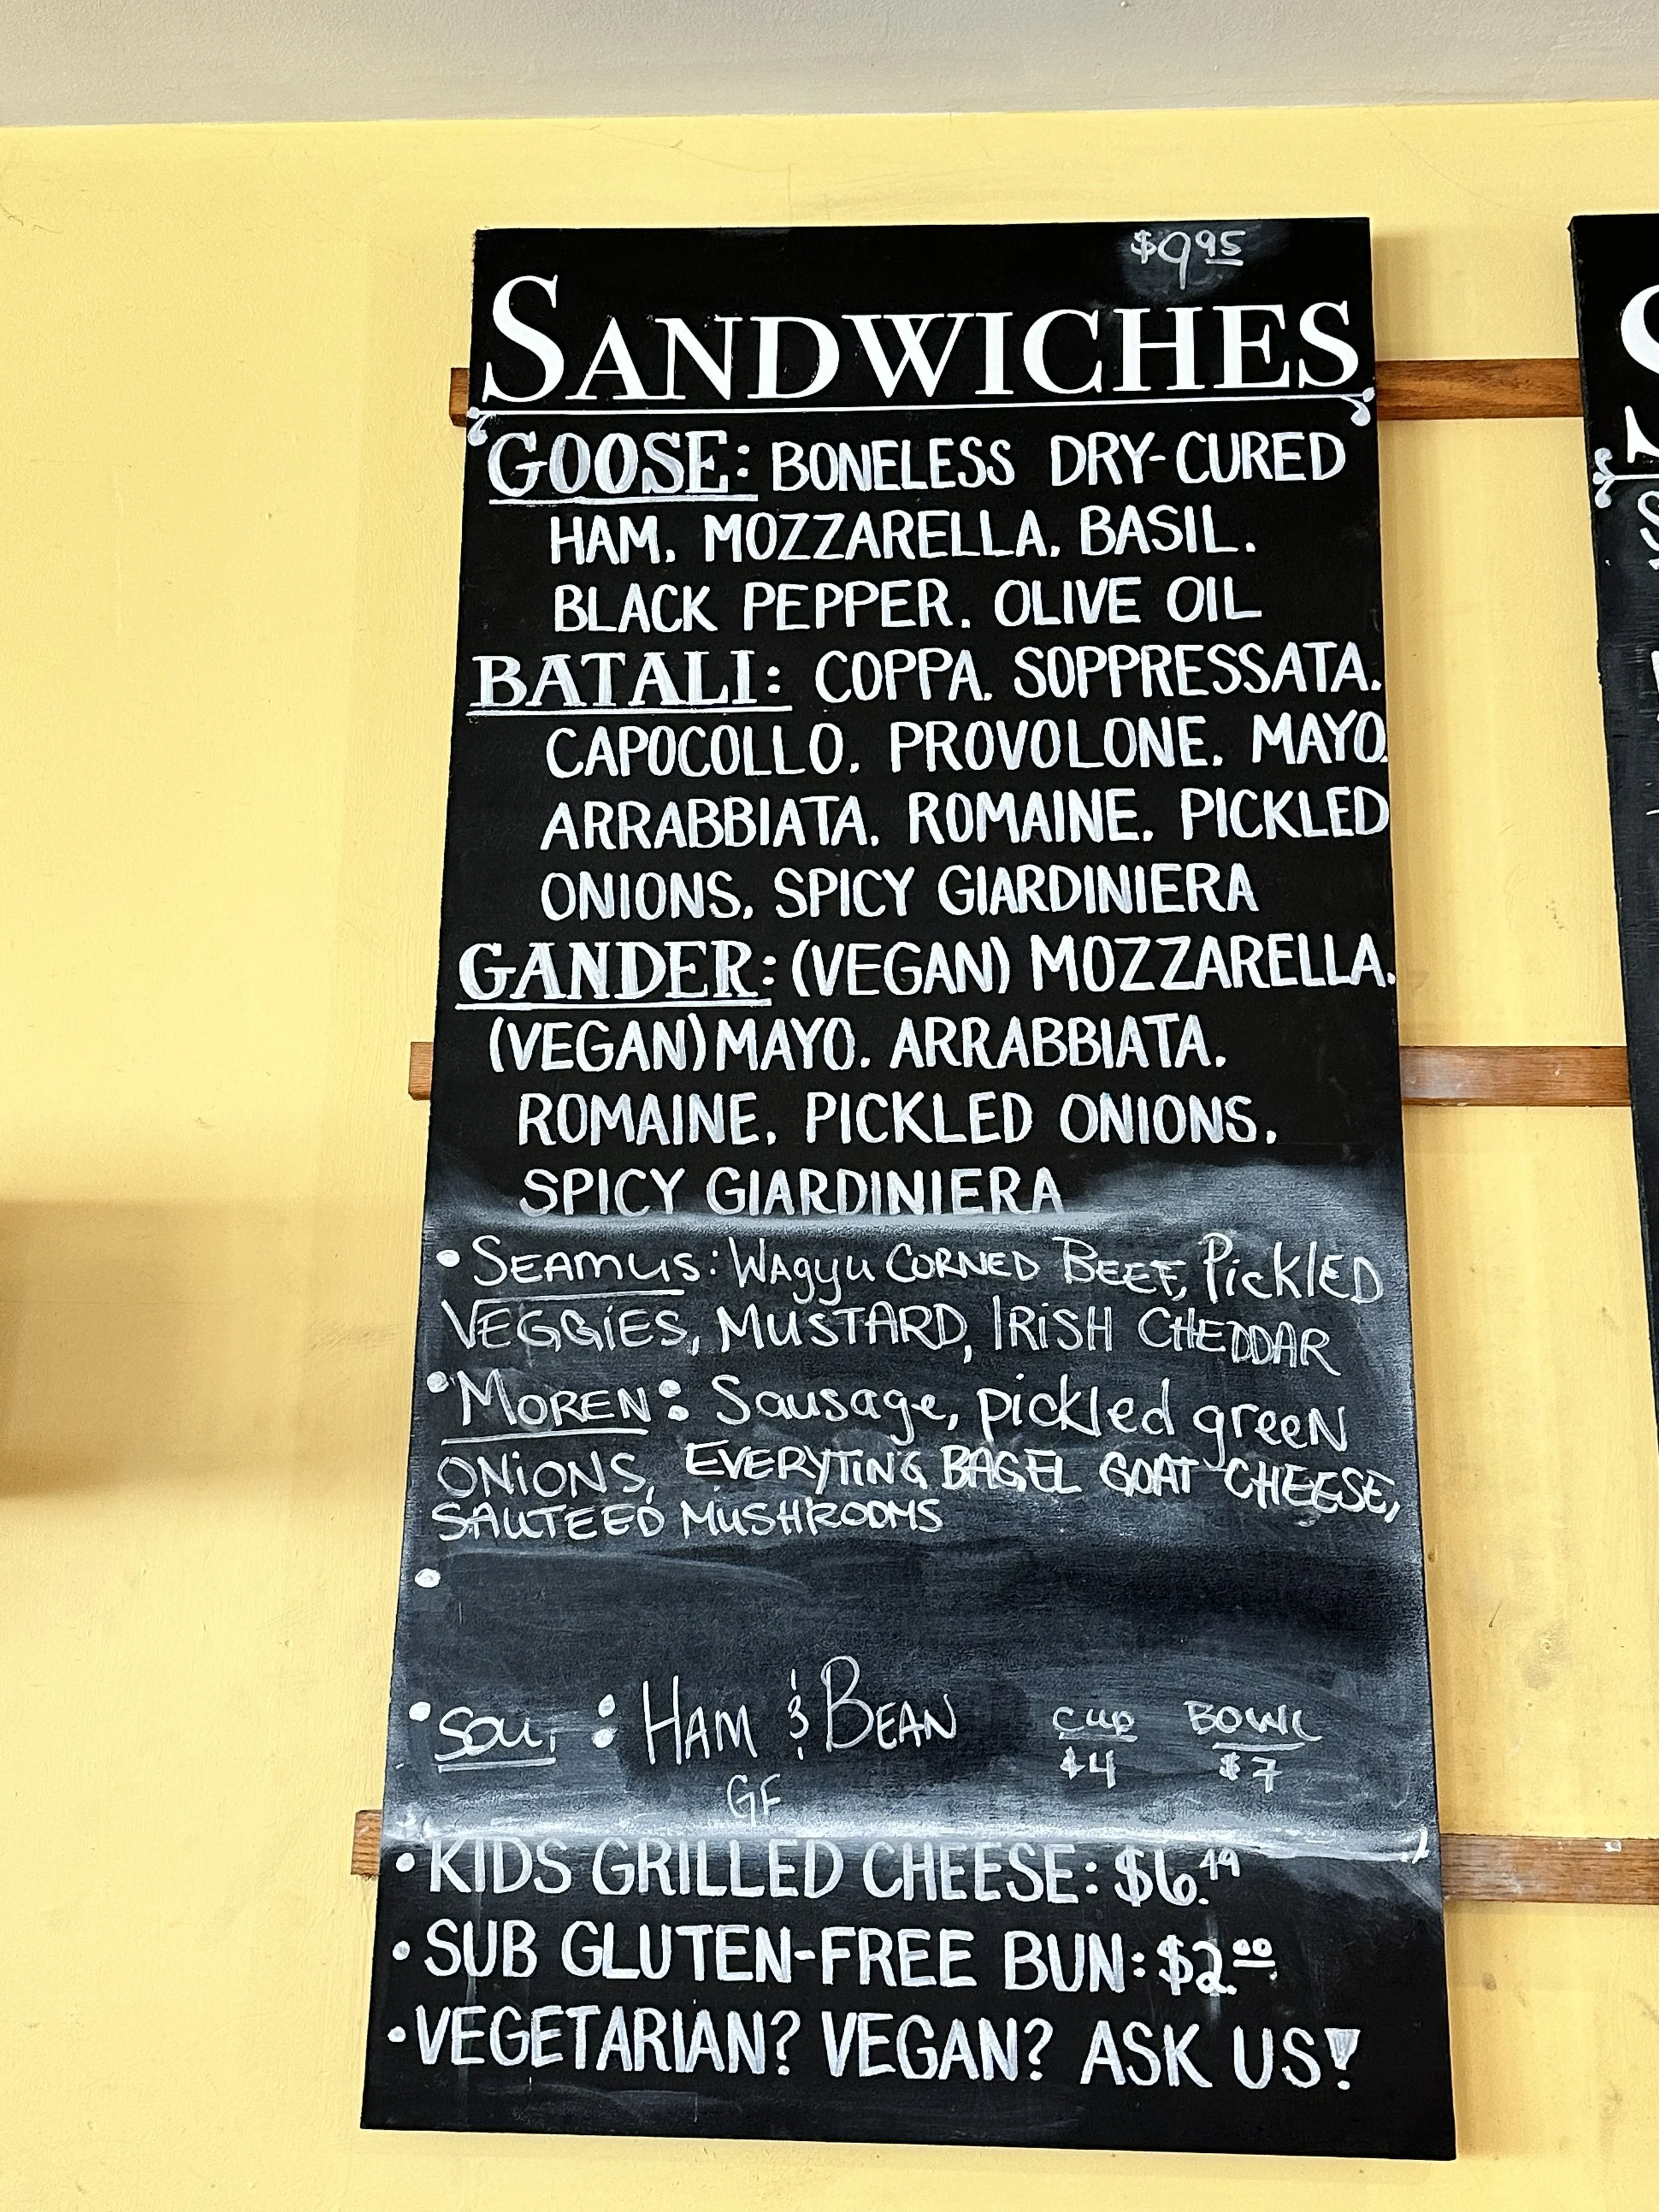 $9.95
SANDWICHES
GOOSE: BONELESS DRY-CURED
HAM, MOZZARELLA, BASIL,
BLACK PEPPER, OLIVE OIL
BATALI: COPPA, SOPPRESSATA,
CAPOCOLLO, PROVOLONE, MAYO,
ARRABBIATA, ROMAINE, PICKLED
ONIONS, SPICY GIARDINIERA
GANDER: (VEGAN) MOZZARELLA,
(VEGAN) MAYO, ARRABBIATA,
ROMAINE, PICKLED ONIONS,
SPICY GIARDINIERA
• SEAMUS: WAgyu CORNED BEEF, PickLED
VEGGiES, MUSTARD, IRiSH CHEDDAR
• MOREN: Sausage, pickled greeN
ONiONS, EVERYTING BAGEL GOAT CHEESE,
SAUTEED MUSHROOMS
•
• SOUP: HAM & BEAN CUP BOWL
$4 $7
GF
• KIDS GRILLED CHEESE: $6.49
• SUB GLUTEN-FREE BUN: $2.00
• VEGETARIAN? VEGAN? ASK US!